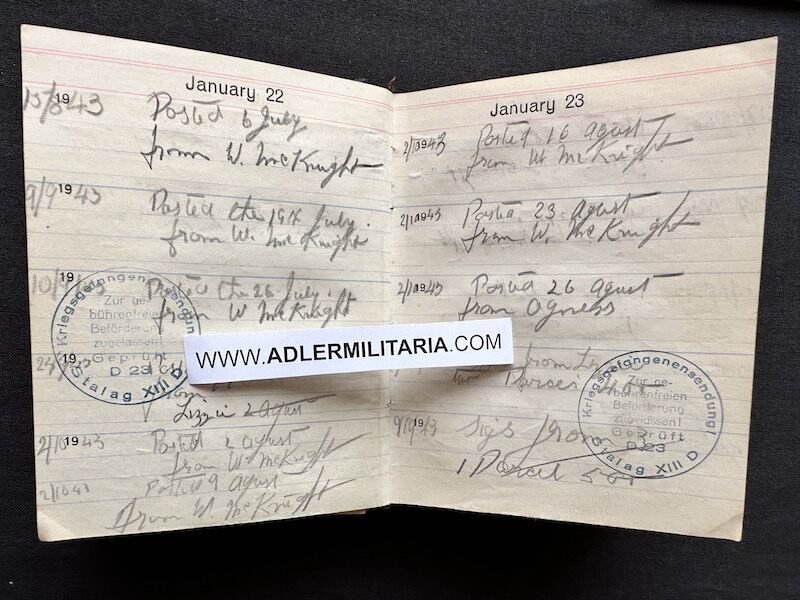 January 22
15/8 1943 Posted 6 July
from W. McKnight
9/9 1943 Posted the 19th July.
from W. McKnight
10/9 1943 Posted the 26 July.
from W McKnight
19
from
Lizzie 2 Agust
2/10 1943 Posted 2 agust
from W. McKnight
2/10 43 Posted 9 agust
from W. McKnight
Kriegsgefangenensendung
Zur ge-
bührenfreien
Beförderung
zugelassen!
Geprüft
D 23
Stalag XIII D
WWW.ADLERMILITARIA.COM
January 23
2/10 1943 Posted 16 agust
from W McKnight
2/10 1943 Posted 23 agust
from W. McKnight
2/10 1943 Posted 26 agust
from Agness
from
Parses
9/10 1943 Sigs from
1 Parcel
Kriegsgefangenensendung!
Zur ge-
bührenfreien
Beförderung
zugelassen!
Geprüft
D 23
Stalag XIII D